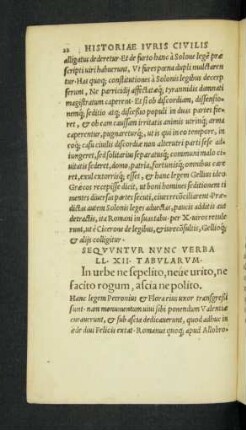 22 HISTORIAE IVRIS CIVILIS
alligatus dederetur. Et de furto hanc à Solone legē præ
scripti uiri habuerunt, Vt fures pœna dupli mulctaren
tur. Has quoq; constitutiones à Solonis legibus decerp
serunt, Ne parricidij affectatæq; tyrannidis damnati
magistratum caperent. Et si ob discordiam, dissensio
nemq; seditio atq; discessio populi in duas partes fie
ret, & ob eam caussam irritatis animis utrinq; arma
caperentur, pugnareturq;, ut is qui in eo tempore, in
eoq; casu ciuilis discordiæ non alterutri parti sese ad
iungeret, sed solitarius separatusq; communi malo ci
uitatis secederet, domo, patria, fortunisq; omnibus care
ret, exul extorrisq; esset, & hanc legem Gellius ideo
Græcos recepisse dicit, ut boni homines seditionem si
mentes diuersas partes sectati, ciues reconciliarent. Præ
dictas autem Solonis leges aduectas, paucis additis aut
detractis, ita Romani in suas tabu- per X-uiros retule
runt, ut è Cicerone de legibus, & iureconsultis, Gellioq;
& alijs colligitur.
SEQVVNTVR NVNC VERBA
LL· XII· TABVLARVM·
In urbe ne sepelito, neúe urito, ne
facito rogum, ascia ne polito.
Hanc legem Petronius & Flora eius uxor transgressi
sunt· nam monumentum uiui sibi ponendum Valentiæ
curauerunt, & sub ascia dedicauerunt, quod adhuc in
æde diui Felicis extat· Romanus quoq; apud Allobro-